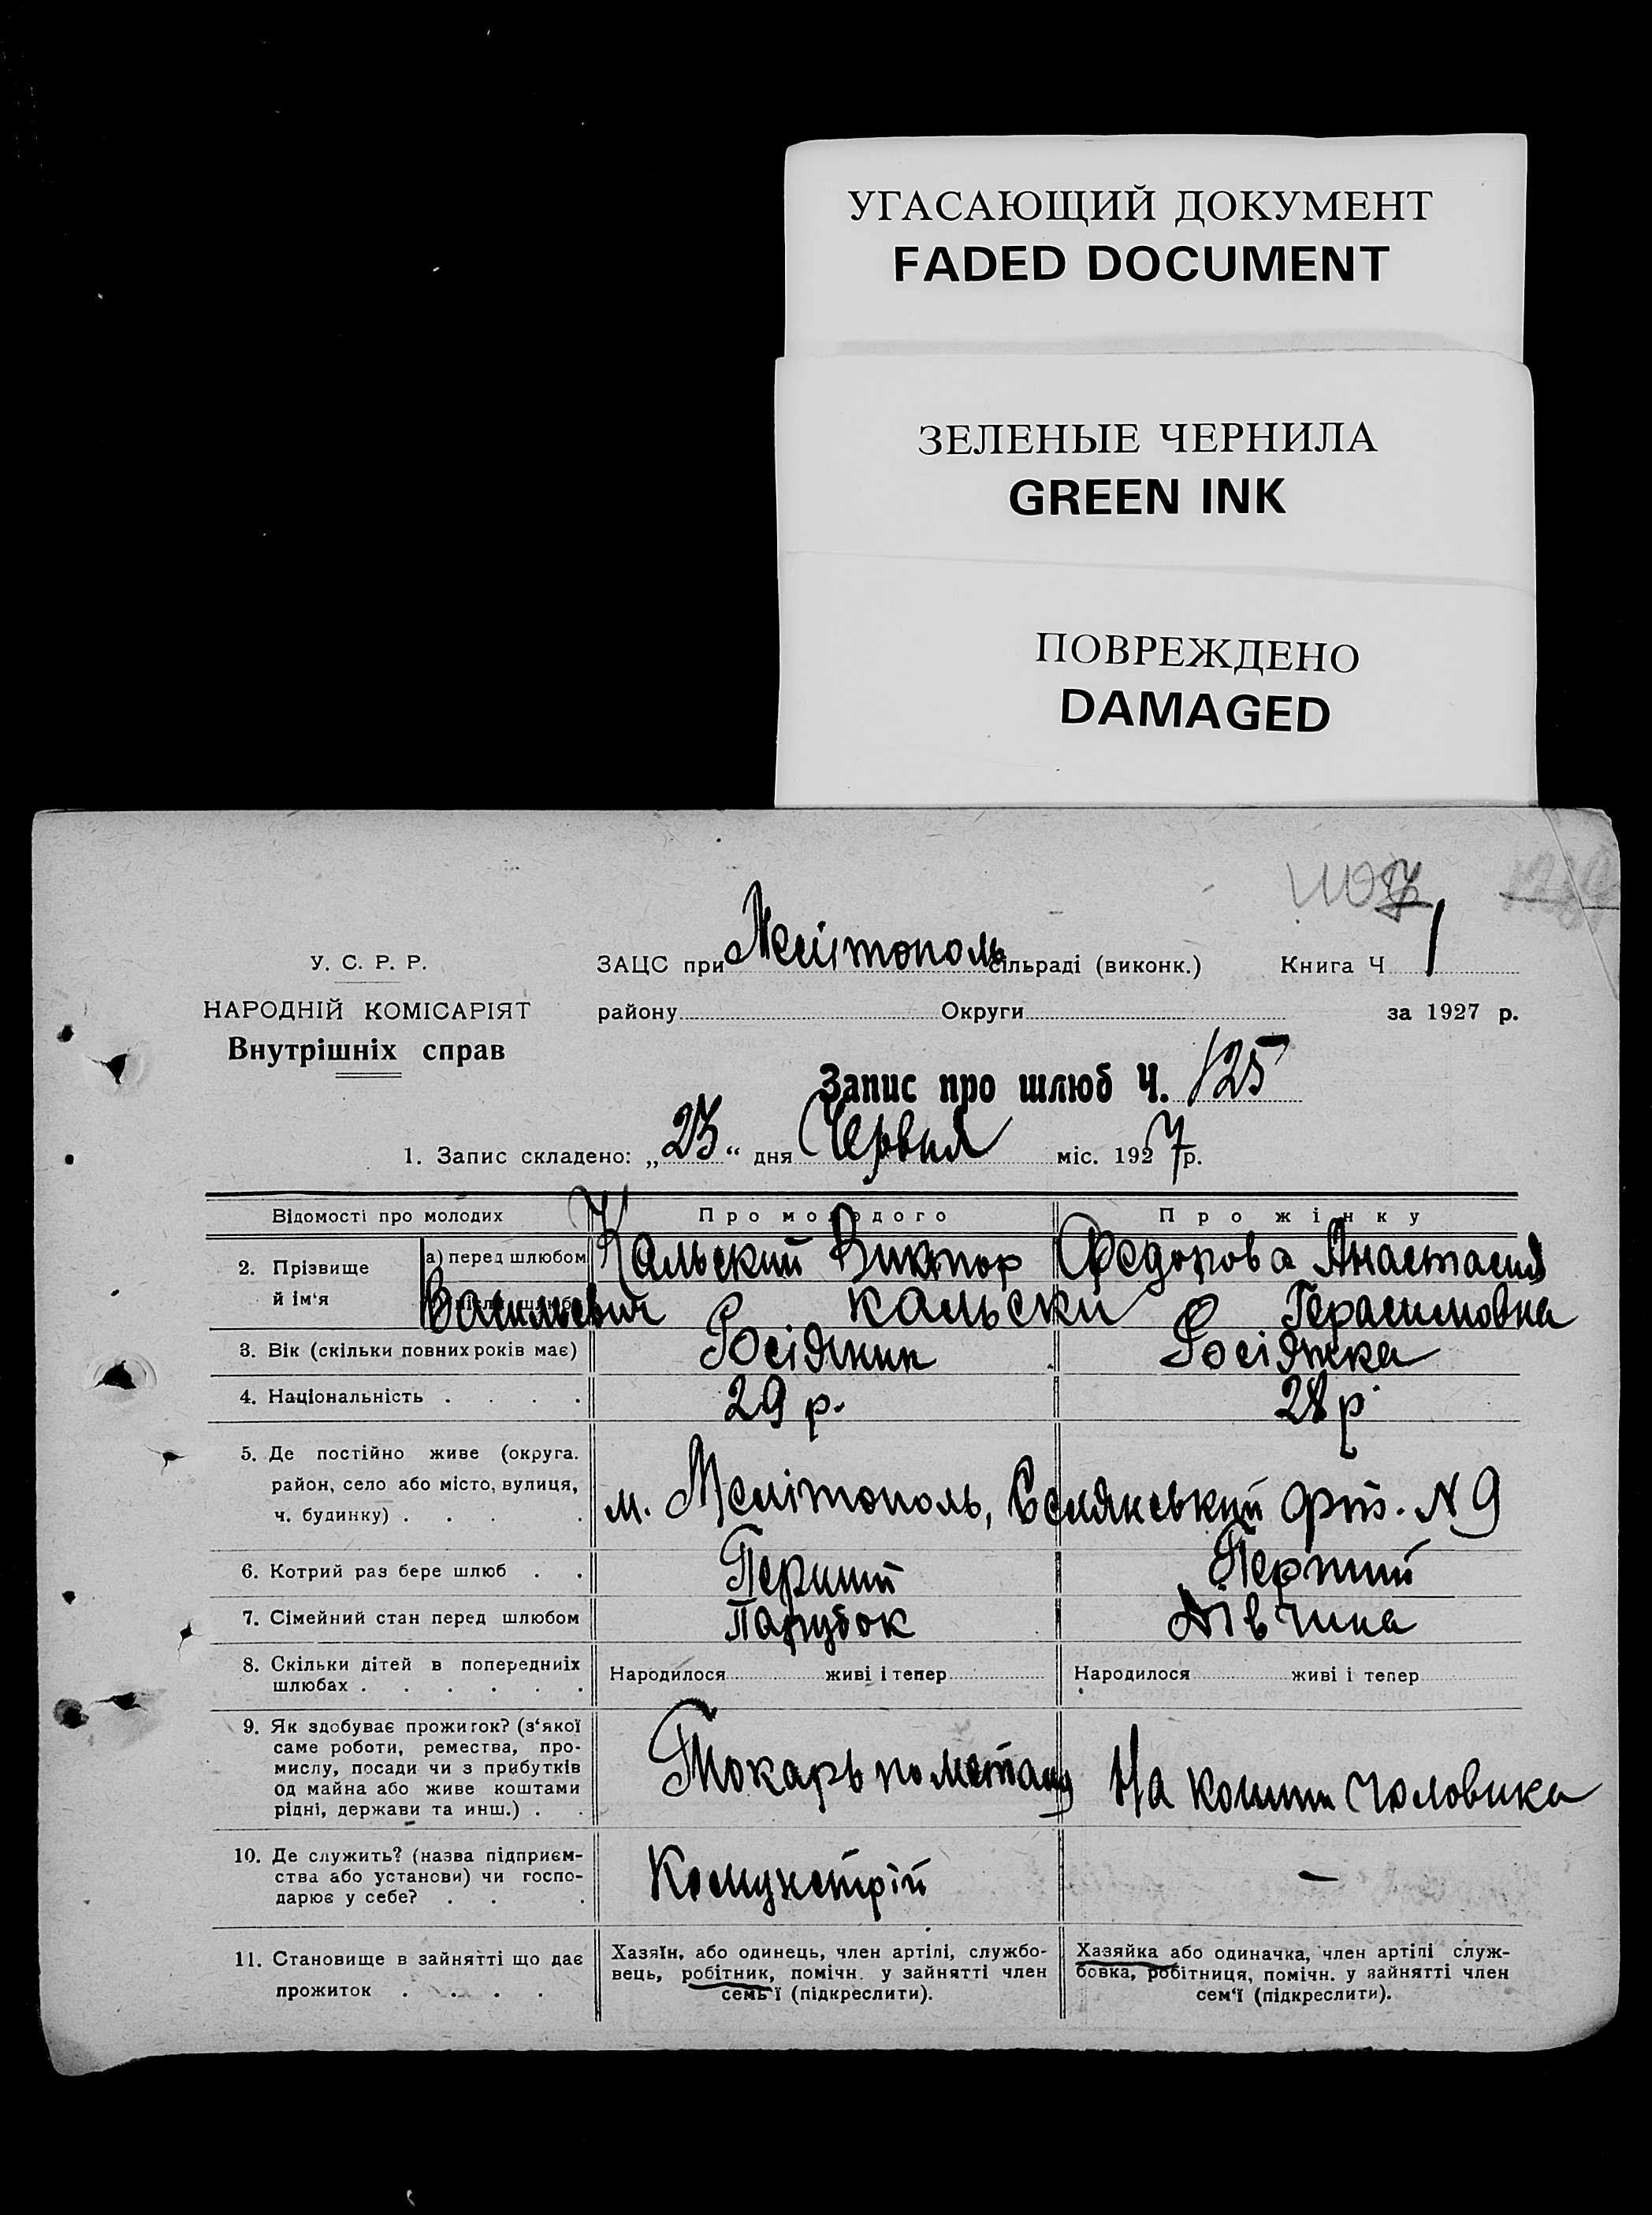 УГАСАЮЩИЙ ДОКУМЕНТ
FADED DOCUMENT
ЗЕЛЕНЫЕ ЧЕРНИЛА
GREEN INK
ПОВРЕЖДЕНО
DAMAGED
У. С. Р. Р.
НАРОДНІЙ КОМІСАРІЯТ
Внутрішніх справ
ЗАЦС при Мелітополь сільраді (виконк.) Книга Ч 1
району Округи за 1927 р.
Запис про шлюб Ч. 125
1. Запис складено: „23“ дня Червня міс. 1927 р.
Відомості про молодих Про молодого Про жінку
2. Прізвище й ім‘я а) перед шлюбом Кальский Виктор Федорова Анастасия
Васильевич Кальски Герасимовна
3. Вік (скільки повних років має) Росіянин Росіянка
4. Національність . . . . 29 р. 28 р.
5. Де постійно живе (округа.
район, село або місто, вулиця,
ч. будинку) . . . . м. Мелітополь, фт. N 9
6. Котрий раз бере шлюб . . Перший Перший
7. Сімейний стан перед шлюбом Парубок Дівчина
8. Скільки дітей в попередниіх
шлюбах . . . . . . Народилося живі і тепер Народилося живі і тепер
9. Як здобуває прожиток? (з‘якої
саме роботи, ремества, про-
мислу, посади чи з прибутків
од майна або живе коштами
рідні, держави та инш.) . . Токарь по металу На кошти чоловика
10. Де служить? (назва підприєм-
ства або установи) чи госпо-
дарює у себе? . . .
11. Становище в зайнятті що дає
прожиток . . . .
Хазяїн, або одинець, член артілі, службо-
вець, робітник, помічн. у зайнятті член
семь‘ї (підкреслити).
Хазяйка або одиначка, член артілі служ-
бовка, робітниця, помічн. у зайнятті член
сем‘ї (підкреслити).